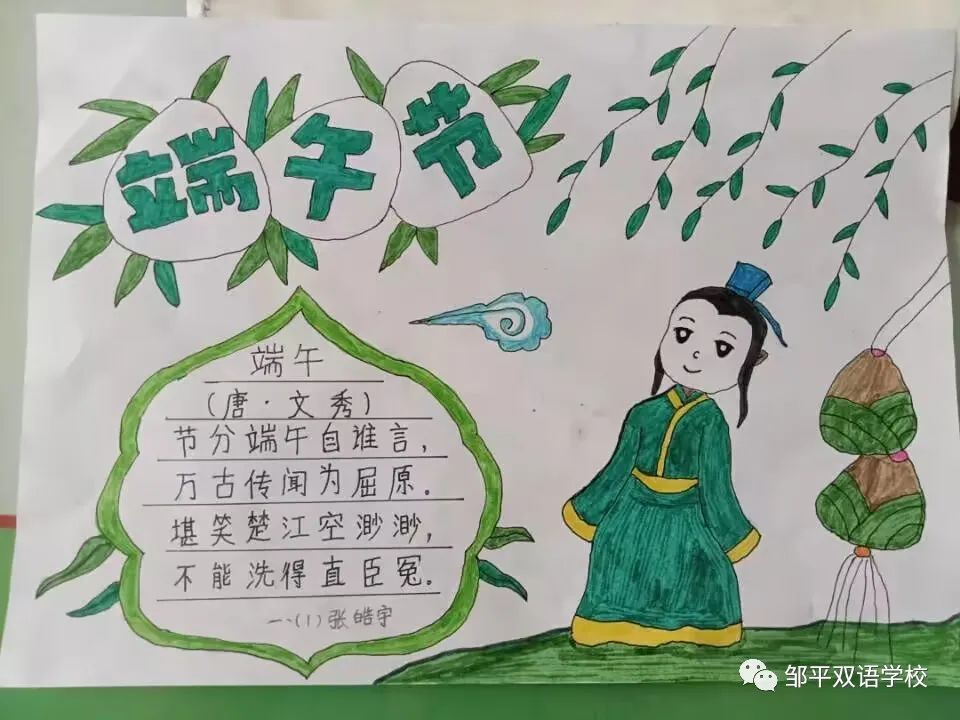 端午节
端午
(唐·文秀)
节分端午自谁言,
万古传闻为屈原.
堪笑楚江空渺渺,
不能洗得直臣冤.
一、(1)张皓宇
邹平双语学校